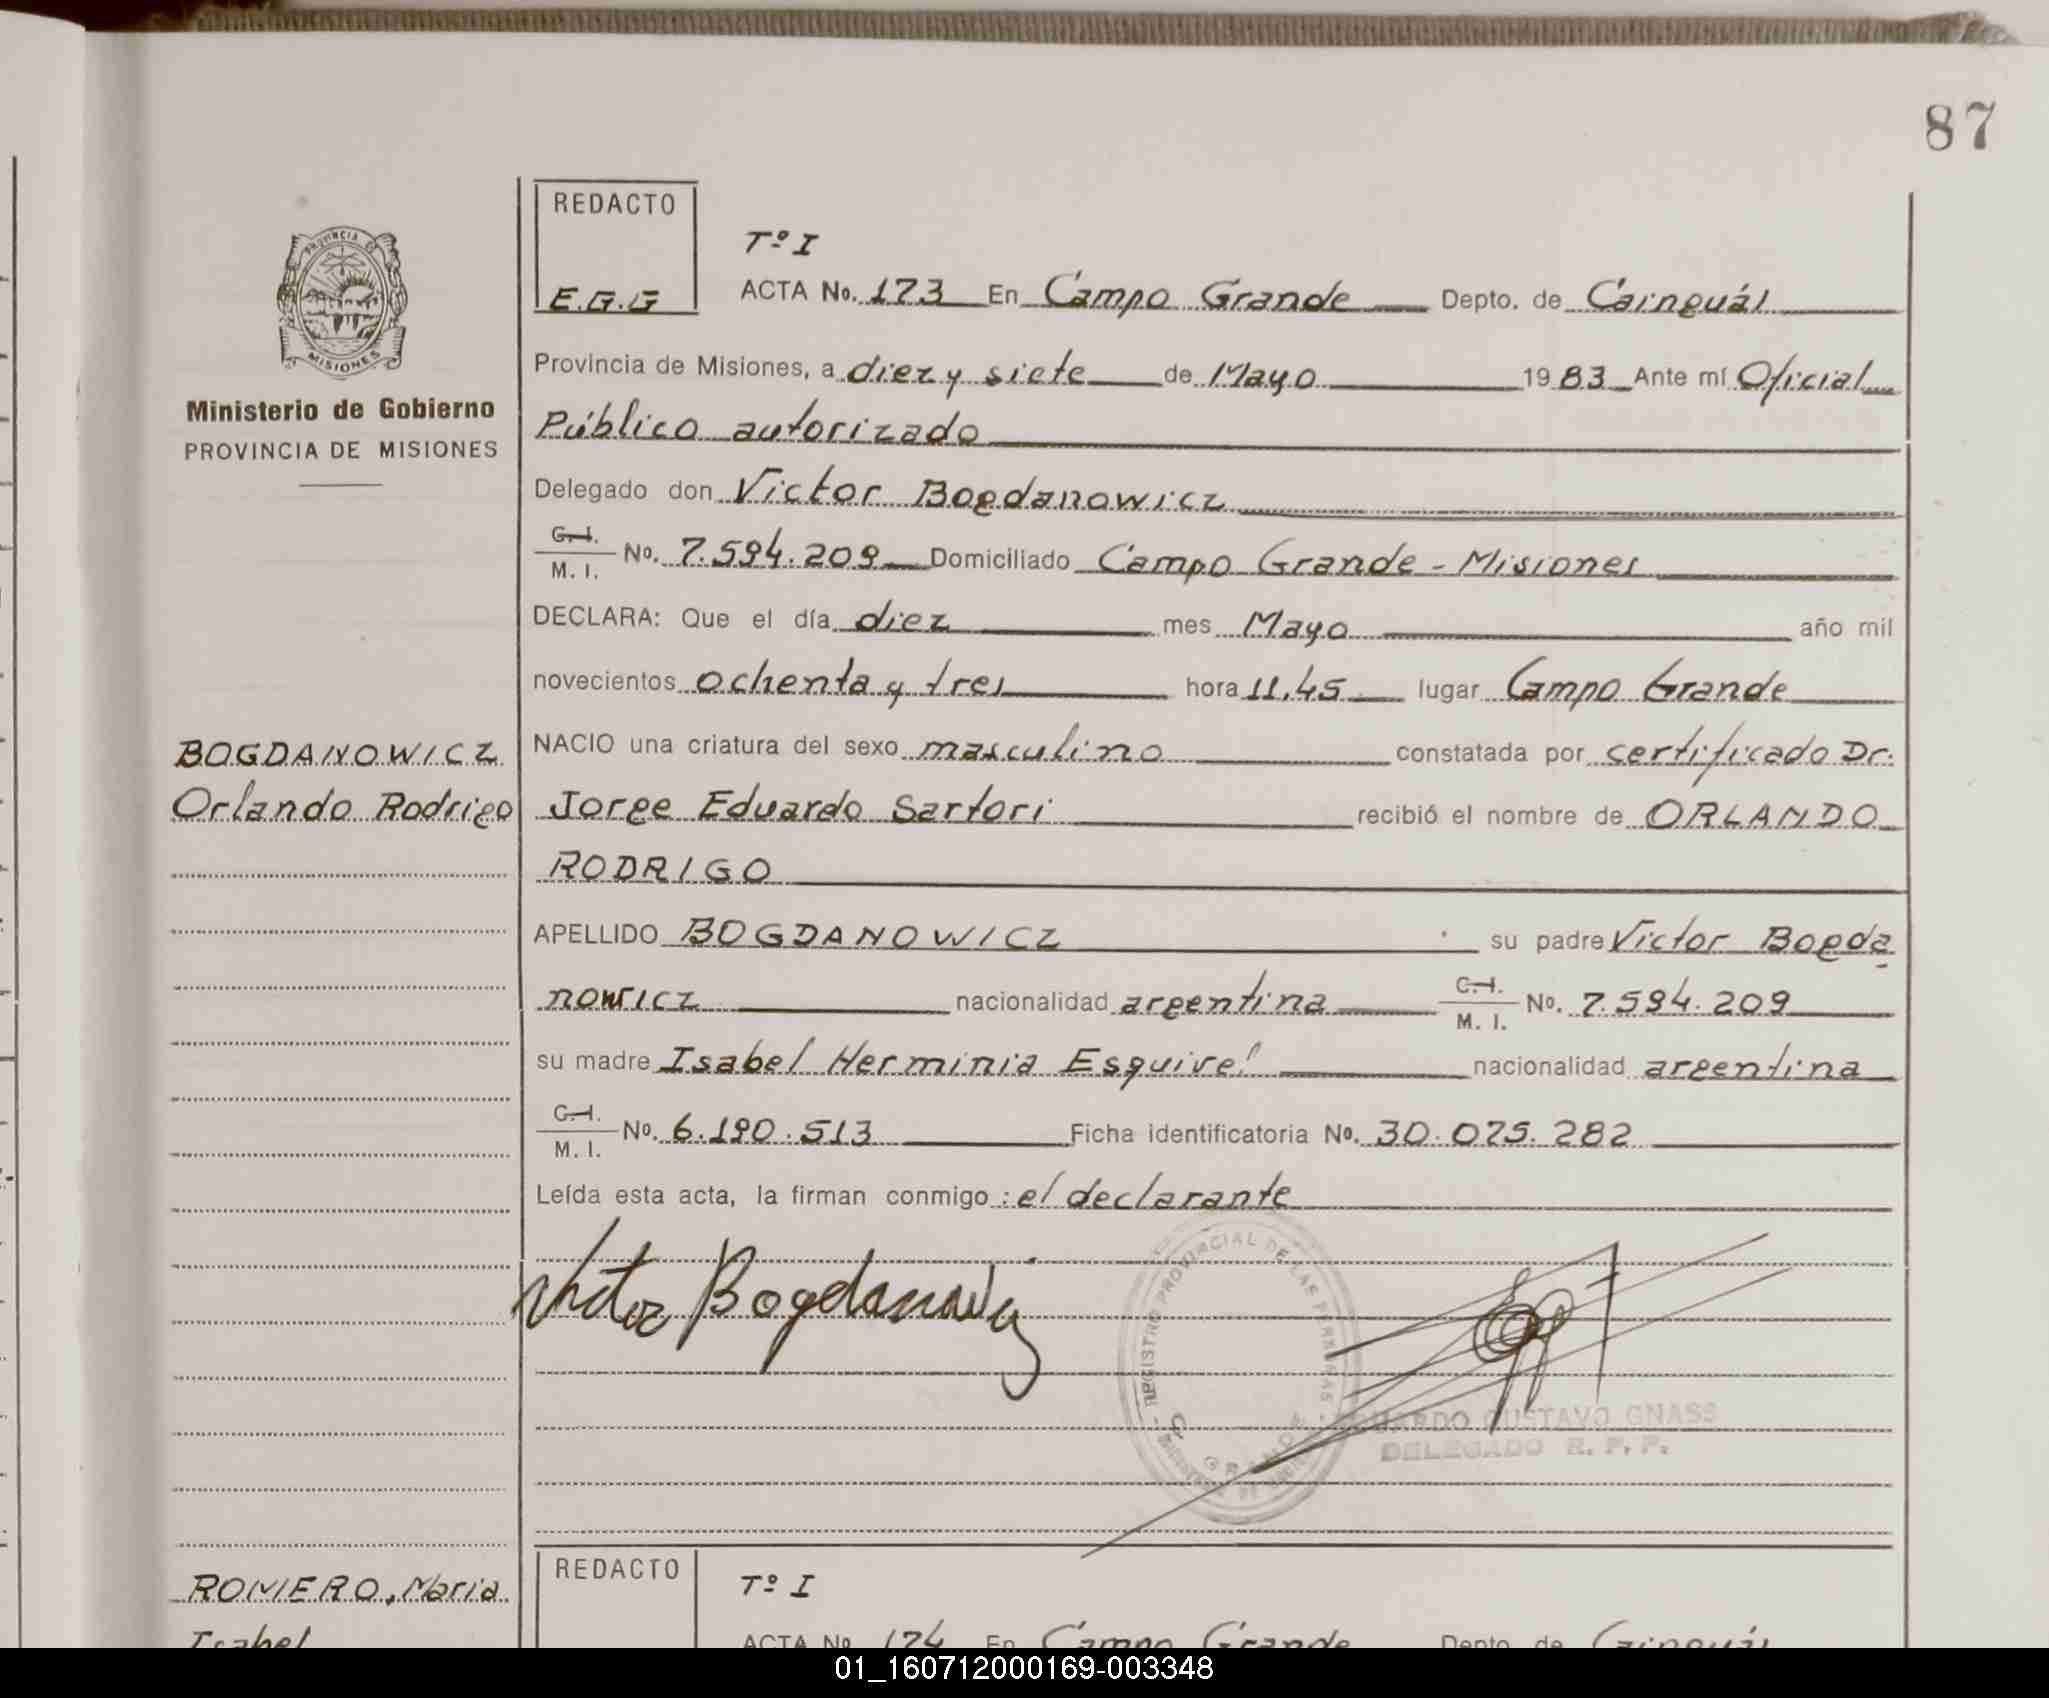 87
REDACTO
E.G.G
Tº I
ACTA No. 173 En Campo Grande Depto. de Cainguás
PROVINCIA DE
MISIONES
Ministerio de Gobierno
PROVINCIA DE MISIONES
Provincia de Misiones, a diez y siete de Mayo 1983 Ante mí Oficial
Público autorizado
Delegado don Victor Bogdanowicz
C.I.
M. I. No. 7.594.209 Domiciliado Campo Grande - Misiones
DECLARA: Que el día diez mes Mayo año mil
novecientos ochenta y tres hora 11,45 lugar Campo Grande
BOGDANOWICZ
Orlando Rodrigo
NACIO una criatura del sexo masculino constatada por certificado Dr.
Jorge Eduardo Sartori recibió el nombre de ORLANDO
RODRIGO
APELLIDO BOGDANOWICZ su padre Victor Bogda
nowicz nacionalidad argentina C.I.
M. I. No. 7.594.209
su madre Isabel Herminia Esquivel nacionalidad argentina
C.I.
M. I. No. 6.190.513 Ficha identificatoria No. 30.075.282
Leída esta acta, la firman conmigo: el declarante
Victor Bogdanowicz
REGISTRO PROVINCIAL DE LAS PERSONAS
EDUARDO GUSTAVO GNASS
DELEGADO R. P. P.
ROMERO, Maria
Isabel
REDACTO
Tº I
ACTA No. 174 En Campo Grande Depto. de Cainguás
01_160712000169-003348